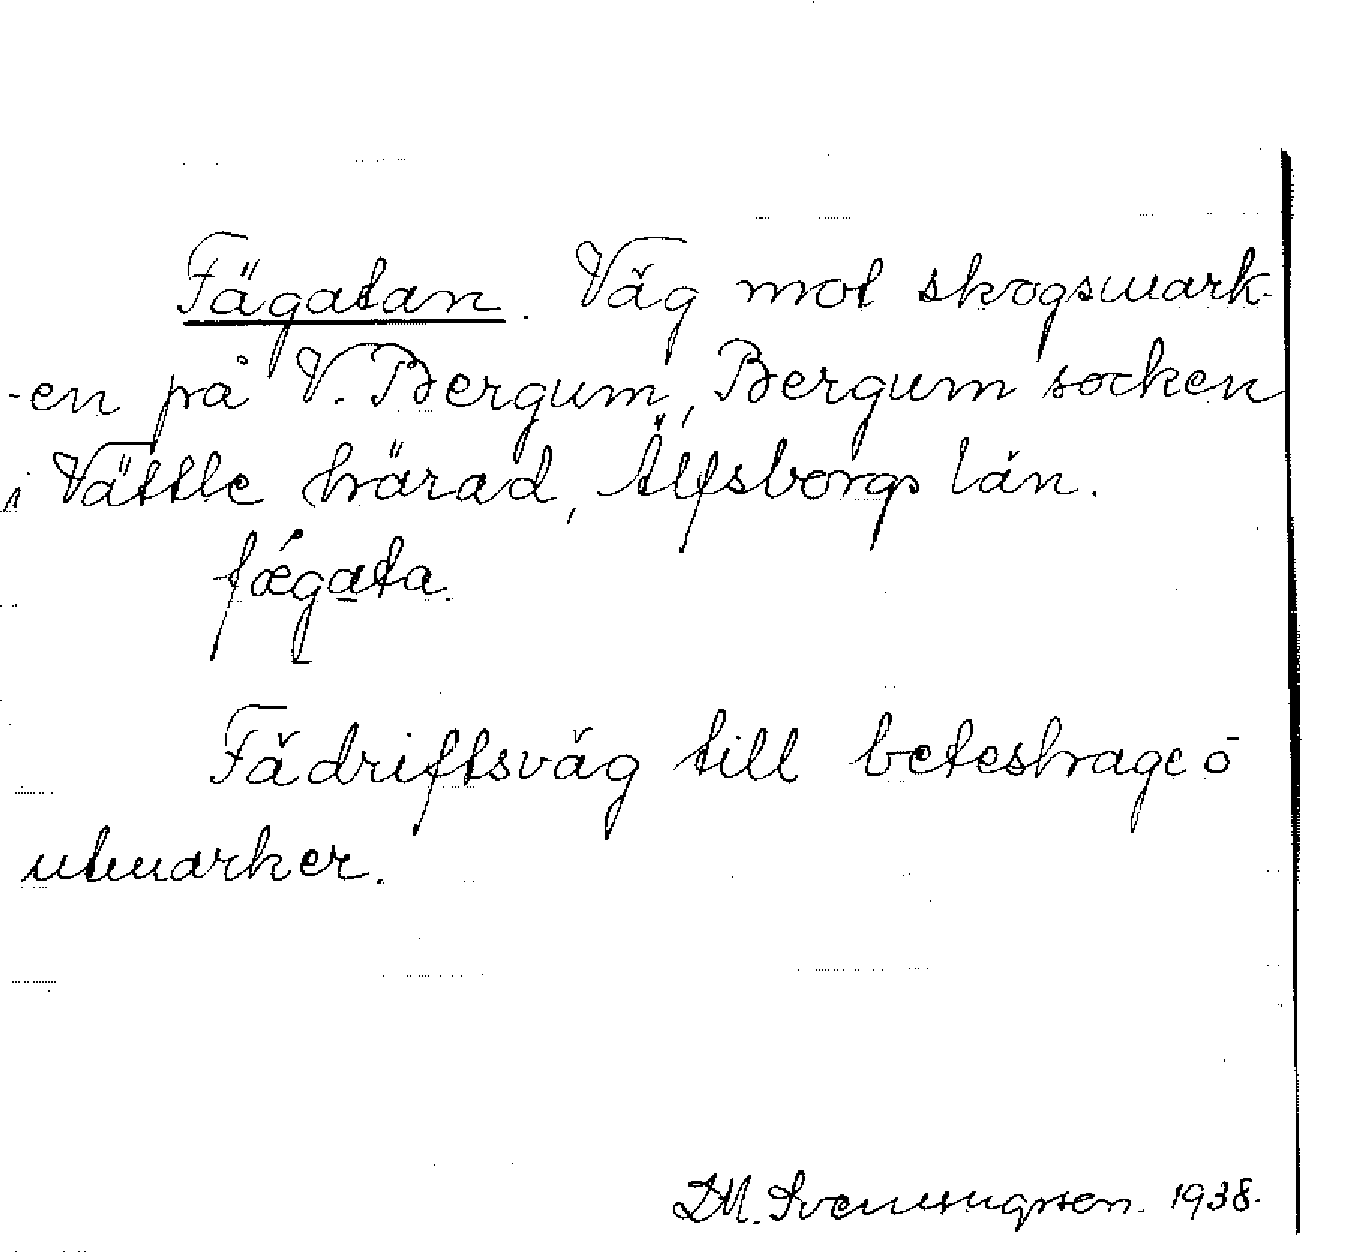 Fägatan. Väg mot skogsmark-
-en på V. Bergum, Bergum socken
i Vättle härad, Älfsborgs län.
fǽgata.
Fädriftsväg till beteshage ō
utmarker.
D.M. Svenungsson. 1938.